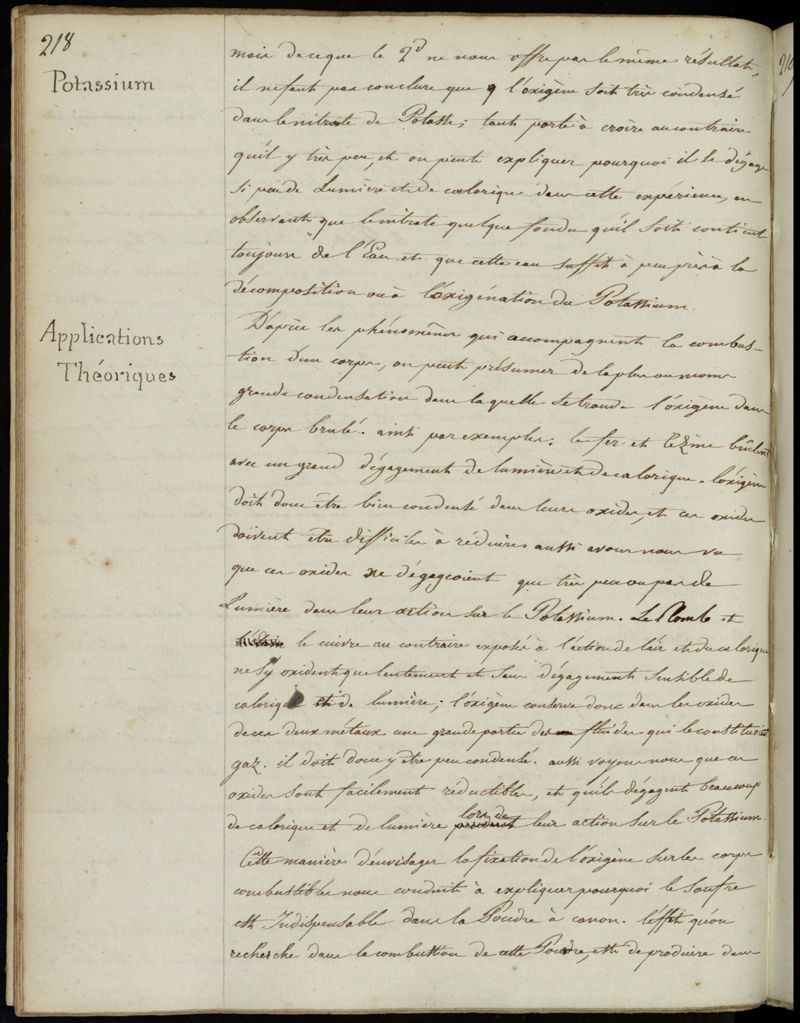 218
Potassium
mais de ce que le 2d ne nous offre pas le même résultat,
il ne faut pas conclure que l'oxigène soit très condensé
dans le nitrate de Potasse; tout porte à croire au contraire
qu'il y très peu, et on peut expliquer pourquoi il se dégage
si peu de Lumière et de calorique dans cette expérience, en
observant que le nitrate quelque fondu qu'il soit contient
toujours de l'Eau, et que cette eau suffit à peu près à la
décomposition ou à l'oxigénation du Potassium.
Applications
Théoriques
D'après les phénomènes qui accompagnent la combus-
tion d'un corps, on peut présumer de la plus ou moins
grande condensation dans laquelle se trouve l'oxigène dans
le corps brulé. ainsi par exemple: le fer et le Zinc brûlent
avec un grand dégagement de lumière et de calorique. l'oxigène
doit donc être bien condensé dans leurs oxides, et ces oxides
doivent être difficiles à réduire, aussi avons nous vu
que ces oxides ne dégageoient que très peu ou pas de
Lumière dans leur action sur le Potassium. Le Plomb et
le cuivre au contraire exposés à l'action de l'air et du calorique
ne s'y oxident que lentement et sans dégagement sensible de
calorique et de lumière; l'oxigène conserve donc dans les oxides
de ces deux métaux une grande partie des fluides qui le constituoient
gaz. il doit donc y être peu condensé. aussi voyons nous que ces
oxides sont facilement réductibles, et qu'ils dégagent beaucoup
de calorique et de lumière lors de leur action sur le Potassium.
Cette manière d'envisager la fixation de l'oxigène sur les corps
combustibles nous conduit à expliquer pourquoi le soufre
est Indispensable dans la Poudre à canon. l'effet qu'on
recherche dans la combustion de cette Poudre, est de produire dans
219